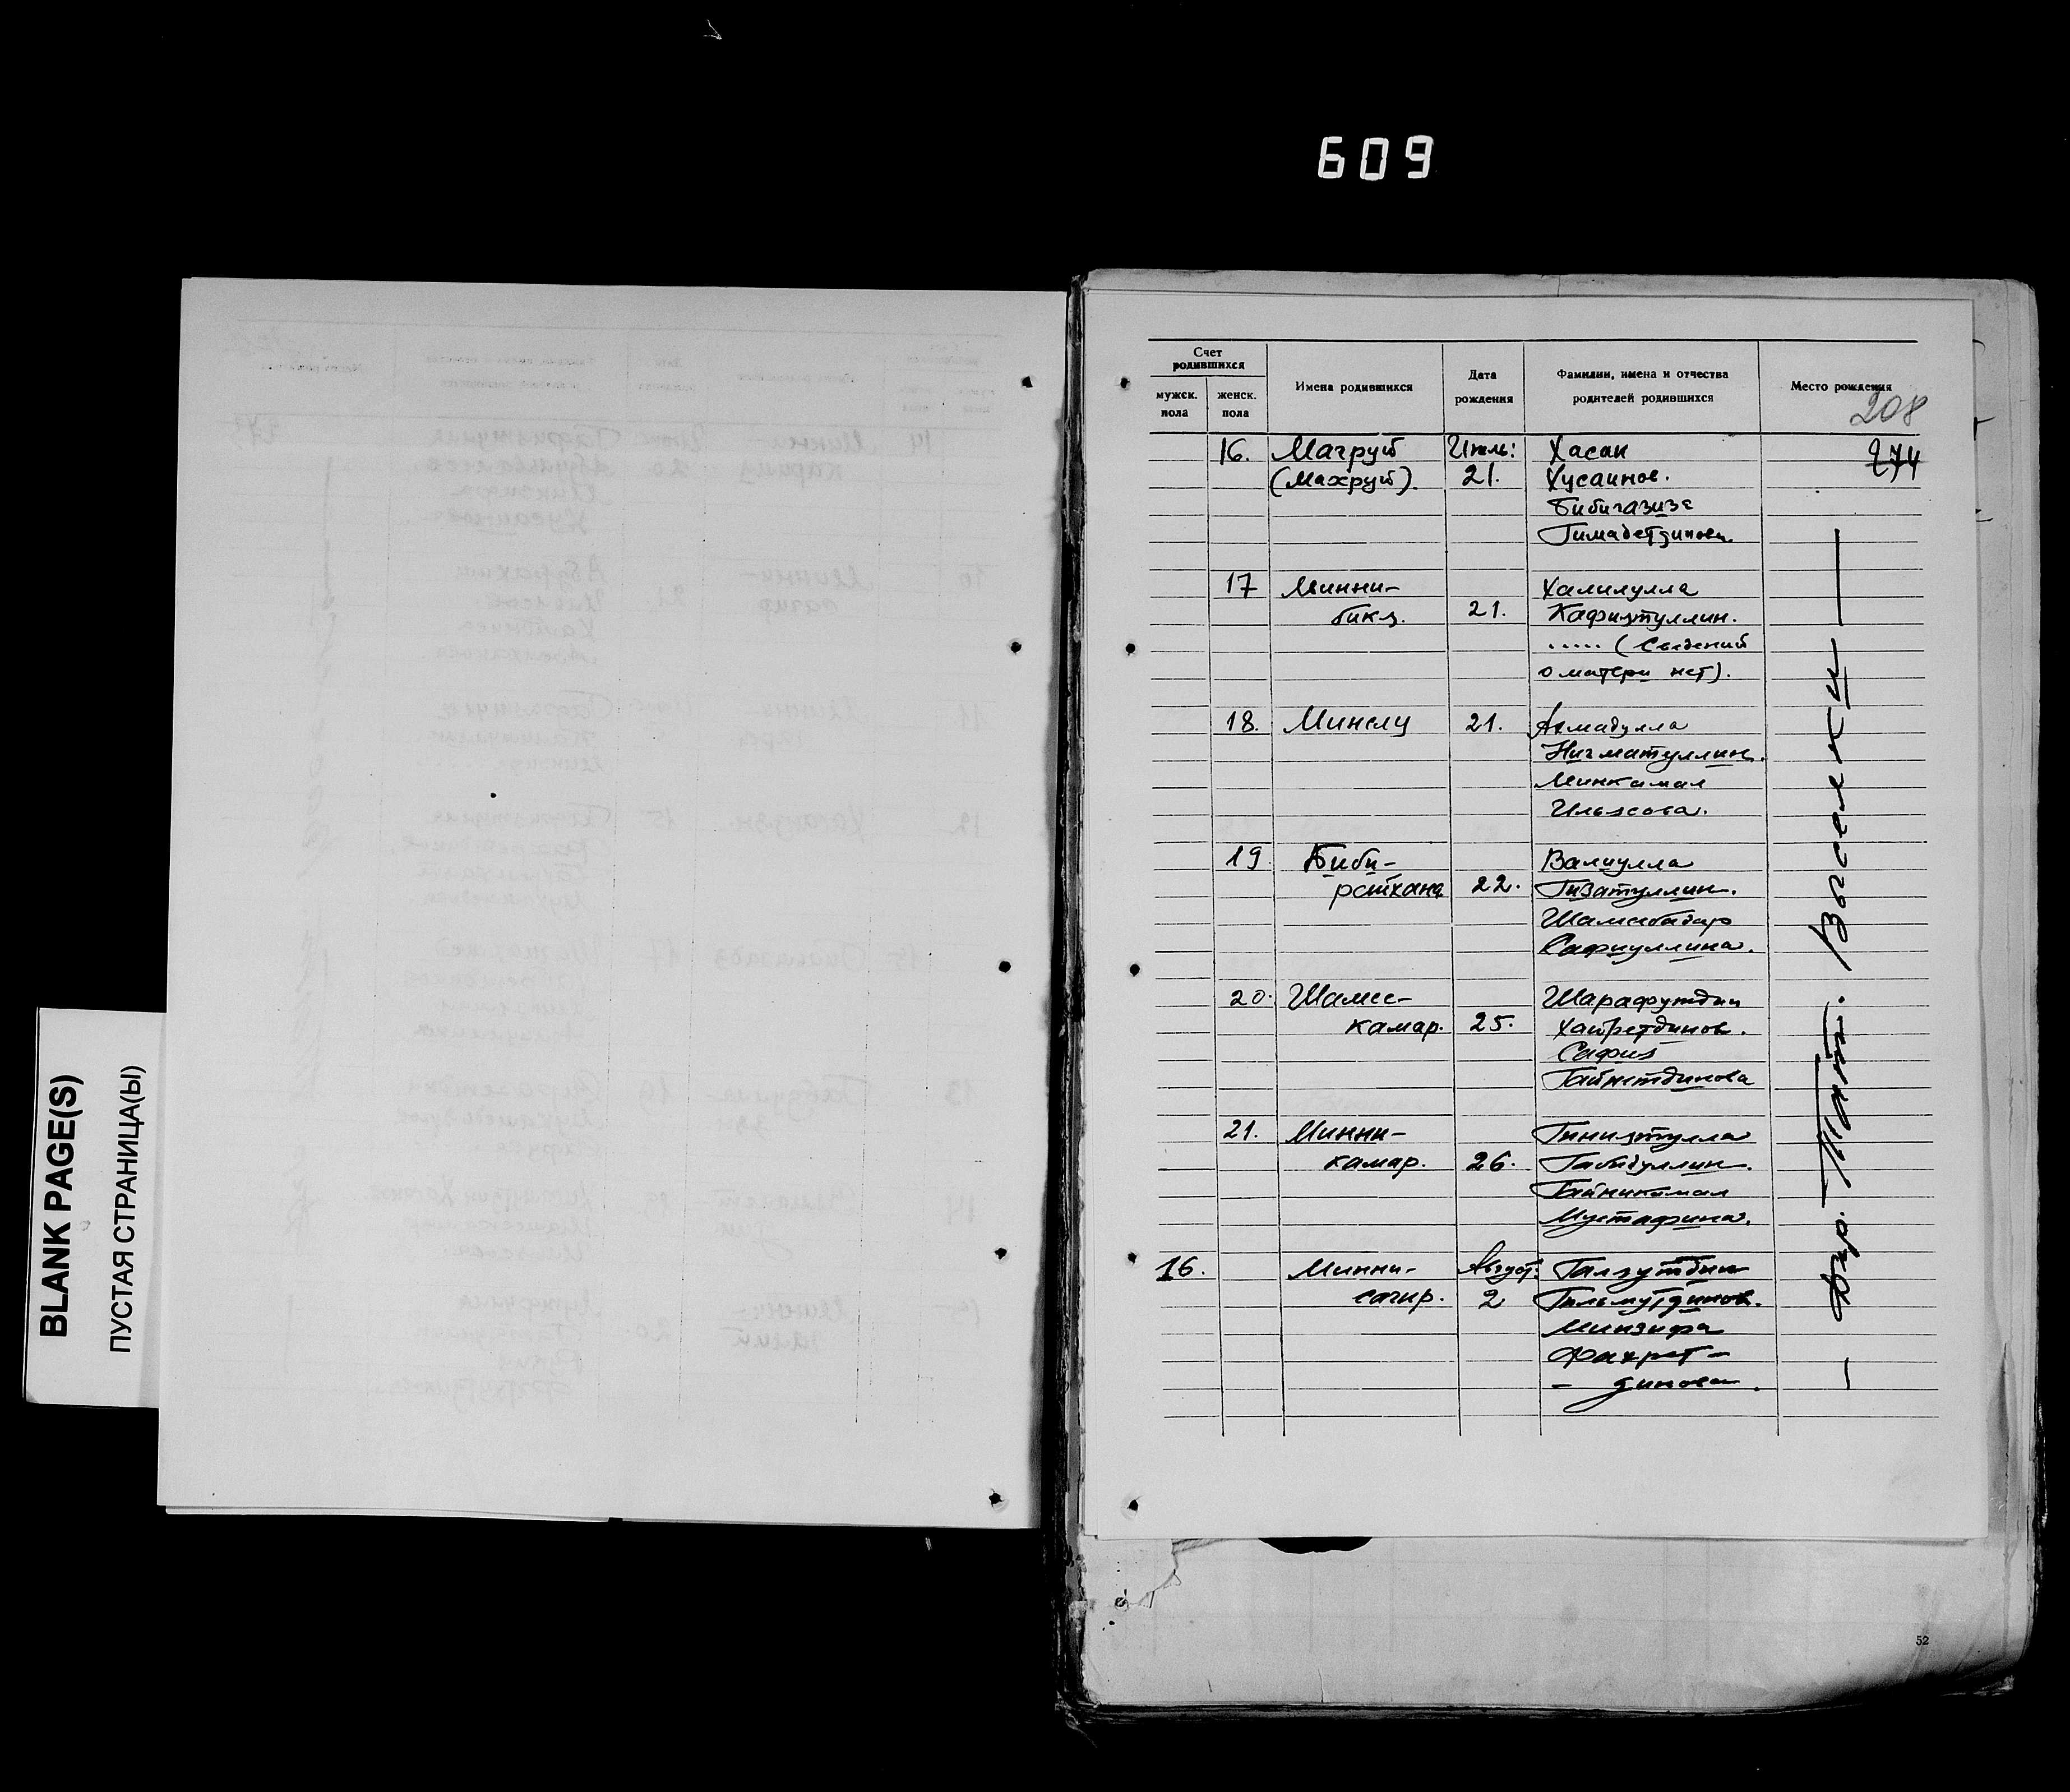 609
BLANK PAGE(S)
ПУСТАЯ СТРАНИЦА(Ы)
Счет родившихся
мужск. пола
женск. пола
Имена родившихся
Дата рождения
Фамилии, имена и отчества родителей родившихся
Место рождения
208
274
16. Магруй Июль: Хасан
(Махруй). 21. Хусаинов.
Бибигазиза
Гимадетдинова.
17 Минни- Халилулла
бикя. 21. Кафиятуллин.
..... (Сведений
о матери нет).
18. Минслу 21. Ахмадулла
Нигматуллин.
Минкамал
Ильясова.
19 Биби- Валиулла
рейхана 22. Гизатуллин.
Шамсибадар
Сафиуллина.
20. Шамс- Шарафутдин
камар. 25. Хайретдинов.
Сафия
Гайнетдинова
21. Минни- Гиниятулла
камар. 26. Габидуллин.
Байникамал
Мустафина.
16. Минни- Август: Галяутдин
сагир. 2 Гильмутдинов.
Минзифа
Фахрет-
- динова.
— Дер. Тат. Выселки —
52